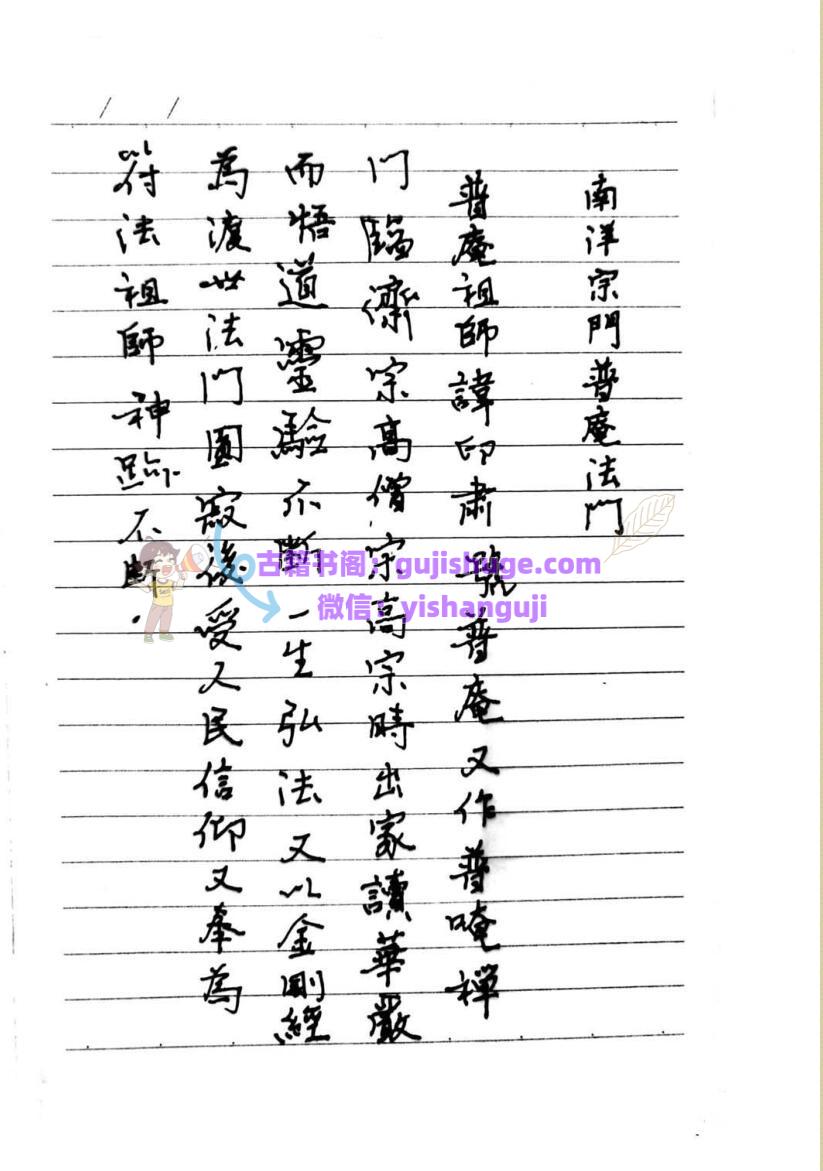 南洋宗門普庵法門
普庵祖師諱印肅號普庵又作普唵禪
門臨濟宗高僧宋高宗時出家讀華嚴
而悟道靈驗不斷一生弘法又以金剛經
為渡世法門圓寂後受人民信仰又奉為
符法祖師神跡不斷.
古籍书阁：gujishuge.com
微信：yishanguji